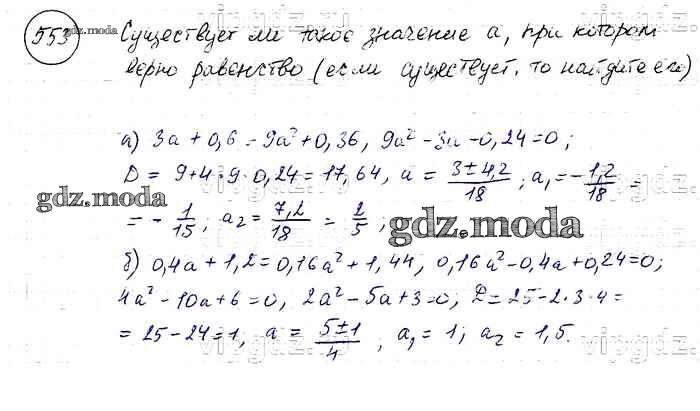 553 Существует ли такое значение a, при котором
верно равенство (если существует, то найдите его)
а) 3a + 0,6 = 9a² + 0,36, 9a² - 3a - 0,24 = 0;
D = 9 + 4·9·0,24 = 17,64, a = (3 ± 4,2)/18; a₁ = -1,2/18 =
= -1/15; a₂ = 7,2/18 = 2/5;
б) 0,4a + 1,2 = 0,16a² + 1,44, 0,16a² - 0,4a + 0,24 = 0;
4a² - 10a + 6 = 0, 2a² - 5a + 3 = 0; D = 25 - 2·3·4 =
= 25 - 24 = 1, a = (5 ± 1)/4, a₁ = 1; a₂ = 1,5.
gdz.moda
gdz.moda
gdz.moda